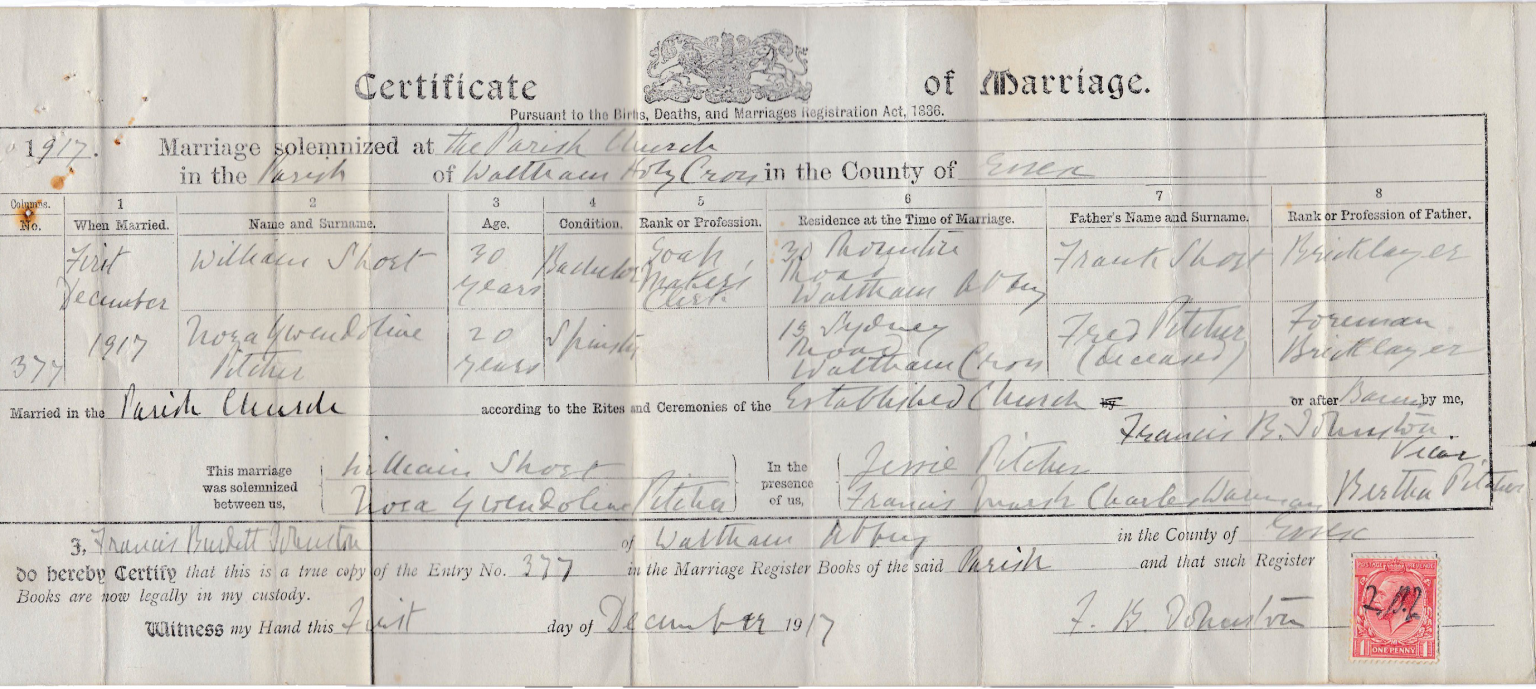 Certificate of Marriage.
Pursuant to the Births, Deaths, and Marriages Registration Act, 1836.
1917. Marriage solemnized at the Parish Church
in the Parish of Waltham Holy Cross in the County of Essex
Columns. 1 2 3 4 5 6 7 8
No. When Married. Name and Surname. Age. Condition. Rank or Profession. Residence at the Time of Marriage. Father's Name and Surname. Rank or Profession of Father.
First December 1917
377
William Short 30 years Bachelor Soap Makers Clerk 30 Road Waltham Abbey Frank Short Bricklayer
Nora Gwendoline Pitcher 20 years Spinster 15 Sydney Road Waltham Cross Fred Pitcher (deceased) Foreman Bricklayer
Married in the Parish Church according to the Rites and Ceremonies of the Established Church by or after Banns by me,
Francis B. Johnston
Vicar
This marriage was solemnized between us, William Short In the presence of us, Jessie Pitcher
Nora Gwendoline Pitcher Francis Charles Warman Bertha Pitcher
I, Francis Burdett Johnston of Waltham Abbey in the County of Essex
do hereby Certify that this is a true copy of the Entry No. 377 in the Marriage Register Books of the said Parish and that such Register
Books are now legally in my custody.
Witness my Hand this First day of December 1917 F. B. Johnston
POSTAGE REVENUE
1 ONE PENNY 1